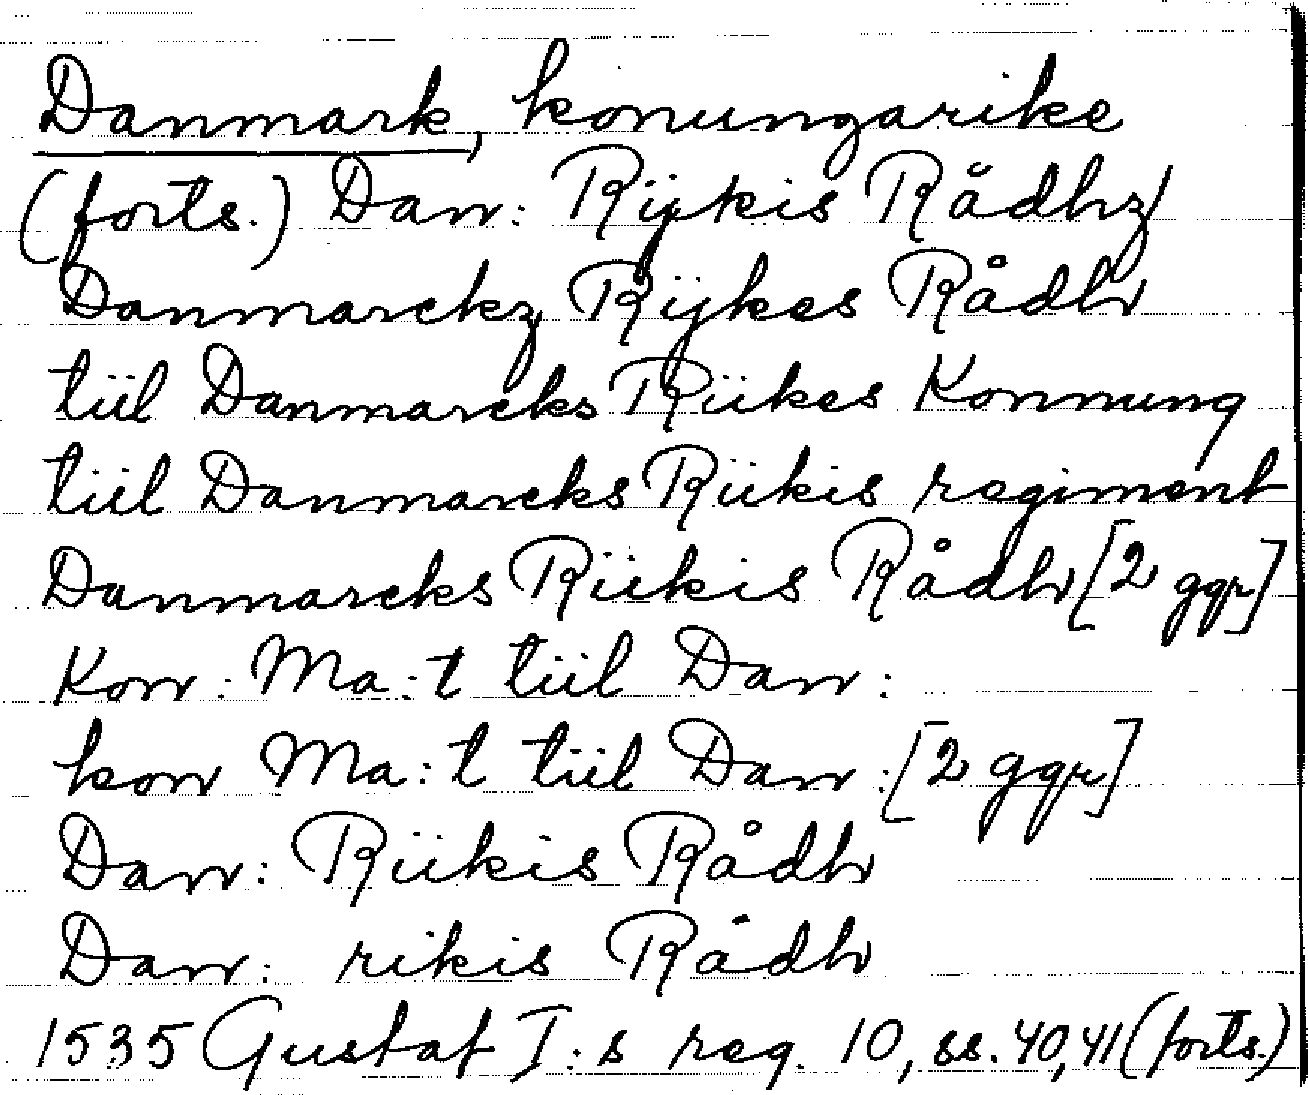 Danmark, konungarike
(forts.) Dan: Rijkis Rådhz/
Danmarckz Rijkes Rådh
tiil Danmarcks Riikes Konnung
tiil Danmarcks Riikis regiment
Danmarcks Riikis Rådh [2 ggr]
Kon: Ma:t tiil Dan:
kon Ma:t tiil Dan: [2 ggr]
Dan: Riikis Rådh
Dan: rikis Rådh
1535 Gustaf I:s reg. 10, ss. 40, 41 (forts.)